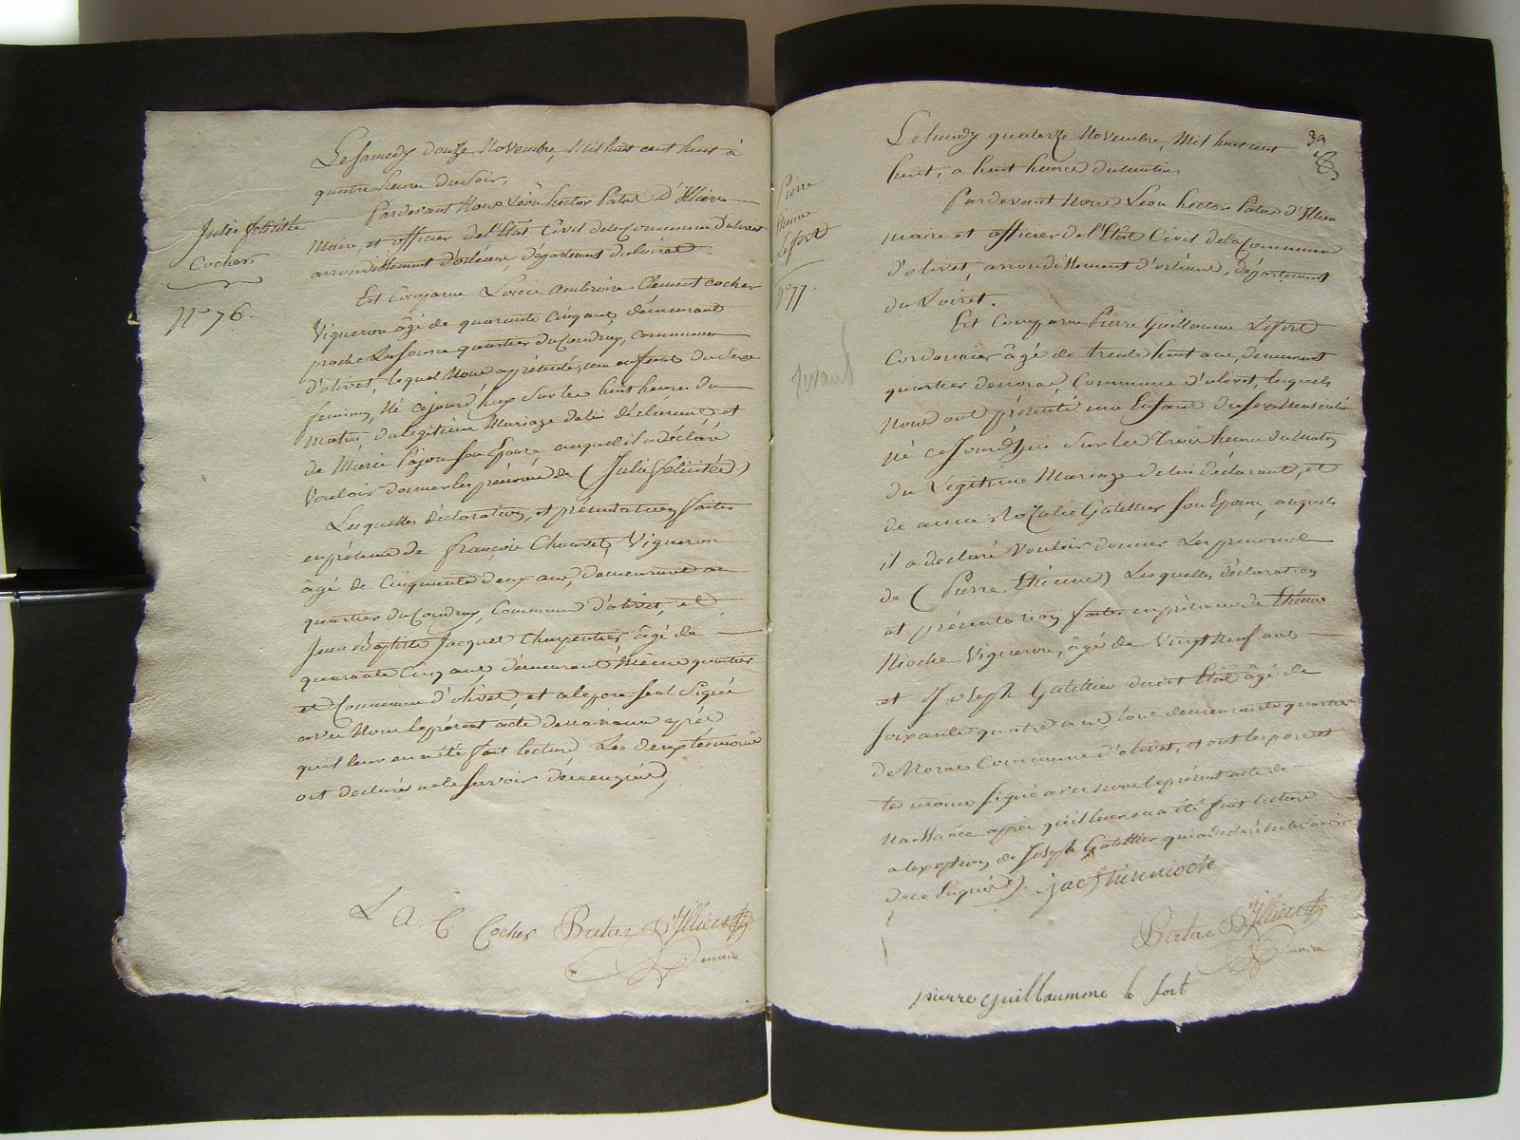 Le Samedy douze Novembre, Mil huit cent huit à
quatre heures du Soir,
Pardevant Nous Léon hector Patas D'Illiers
Maire, et officier de l'Etat Civil de la Commune d'olivet
arrondissement d'orléans, département du loiret
Julie félicitée
Cocher
N° 76.
Est Comparu Louis ambroise Clement cocher
Vigneron âgé de quarante Cinq ans, demeurant
proche La Source quartier du Coudray, commune
d'olivet, lequel Nous a présenté, un enfant du Sexe
feminin, Né cejourd'huy Sur les huit heures du
matin, du légitime Mariage de lui déclarant, et
de Marie Pajon Son Epouse, auquel il a déclaré
Vouloir donner les prénoms de (Julie félicitée)
Lesquelles déclaration, et présentation faites
en présence de françois Chauvet, Vigneron
âgé de Cinquante deux ans, demeurant au
quartier du Coudray, Commune d'olivet, et
Jean Baptiste Jacquet Charpentier, âgé de
quarante Cinq ans demeurant Même quartier
et Commune d'olivet, et a le pere Seul Signé
avec Nous le présent acte de naissance après
qu'il leur en a été fait lecture Les deux témoins
ont déclarés ne le Savoir de ce enquis)
L A C Cocher Patas D'Illiers
maire
39
Le lundy quatorze Novembre, Mil huit cent
huit, a huit heures du matin
Pardevant Nous Léon hector Patas d'Illiers
maire et officier de l'Etat Civil de la Commune
d'olivet, arrondissement d'orléans, département
du Loiret.
Pierre
Etienne
Lefort
N° 77.
Est Comparu Pierre Guillaume Lefort
Cordonnier âgé de trente huit ans, demeurant
quartier de Cornas, Commune d'olivet, lequel
Nous ont présenté un Enfant du Sexe Masculin
Né ce Jourd'hui Sur les trois heures du Matin
du Légitime Mariage de lui déclarant, et
de anne Rozalie Gatellier Son Epouse, auquel
il a declaré Vouloir donner Les prenoms
de (Pierre Etienne) Lesquelles déclaration
et présentation faites en présence de Etienne
Rioche Vigneron, âgé de Vingt Neuf ans
et Joseph Gatellier âgé de
Soixante quatre ans, tous demeurants quartier
Commune d'olivet, et ont les pere et
témoins Signé avec nous le présent acte de
Naissance après qu'il leur en a été fait lecture
a l'exception de Joseph Gatellier qui a déclaré
de ce enquis).
Patas D'Illiers
maire
pierre guillaumme le fort